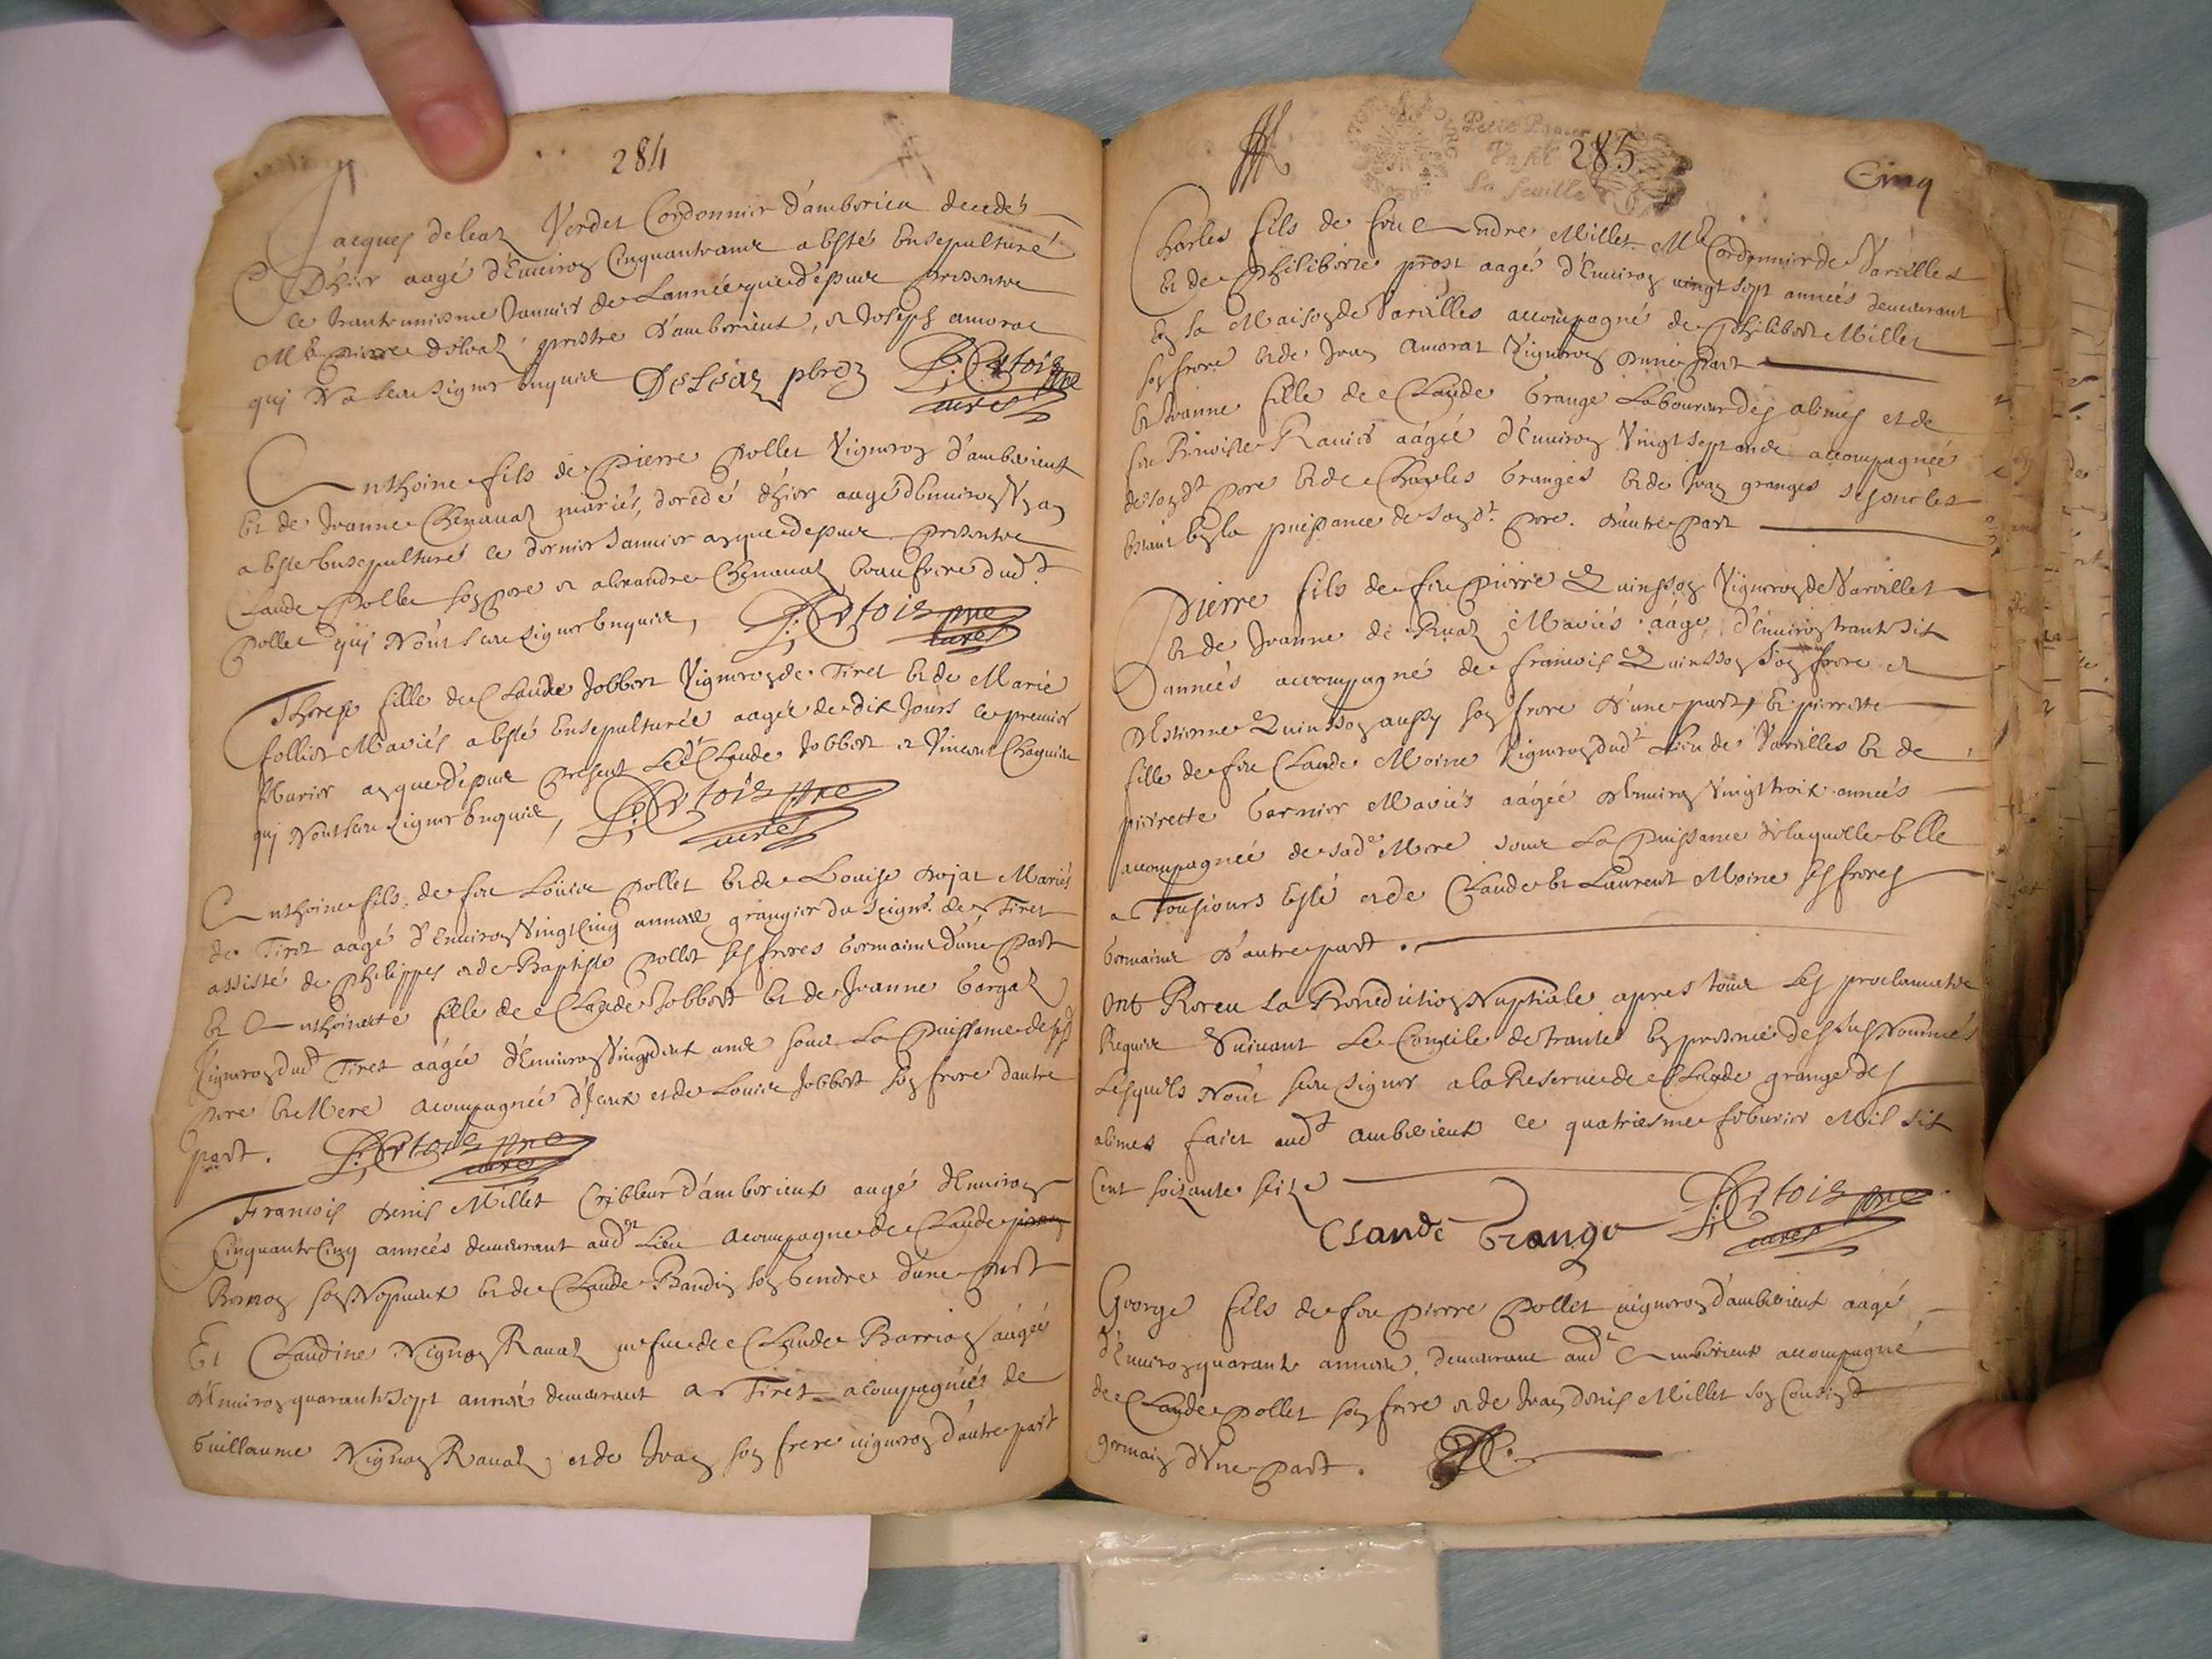 284
Jacques deleaz Verdet Cordonnier d'amberieu decedé
D'hier aagé d'Enuiron Cinquante ans a Esté Ensepulturé
ce trante uniesme Januier de L'année que dessus presents
Mre pierre deleaz prestre d'amberieux, et Joseph amorat
qui N'a sceu signer Enquis Deleaz pbre P. Artois pre
curé
Anthoine fils de Pierre Pollet Vigneron d'amberieux
Et de Jeanne Chenauaz mariés, decedé d'hier aagé d'Enuiron Vn an
a Esté Ensepulturé ce dernier Januier an que dessus presents
Claude Pollet son pere et alexandre Chenauaz beau frere dudt
Pollet qui N'ont sceu signer Enquis, P. Artois pre
curé
Therese fille de Claude Jobbert Vigneron de Tiret Et de Marie
follier Mariés a Esté Ensepulturée aagée de dix Jours ce premier
feburier an que dessus present Led Claude Jobbert et Vincent
qui N'ont sceu signer Enquis, P. Artois pre
curé
Anthoine fils de feu Louis Pollet Et de Louise dojat Mariés
de Tiret aagé d'Enuiron Vingt Cinq années grangier du Seigr de Tiret
assisté de Philippes et de Baptiste Pollet ses freres Germains d'une Part
Et Anthoinette fille de Claude Jobbert Et de Jeanne Gargaz
Vigneron dud Tiret aagée d'Enuiron Vingt deux ans sous La Puissance de sesd
pere Et Mere acompagnée d'Jceux et de Louis Jobbert son frere d'autre
part. P. Artois pre
curé
Francois denis Millet Cribleur d'amberieux aagé d'Enuiron
Cinquante Cinq années demeurant aud Lieu acompagné de Claude
Bornon son Nepueux Et de Claude Baudin son Gendre d'une part
Et Claudine Vignon Rauaz uefue de Claude Barrion aagée
d'Enuiron quarante sept années demeurant a Tiret acompagnées de
Guillaume Vignon Rauaz et de Jean son frere uigneron d'autre part
Petit Papier
La feuille
285
Cinq
Charles fils de feu Andre Millet Mre Cordonnier de Vareilles
Et de Philiberte prost aagé d'Enuiron vingt sept années demeurant
En sa Maison de Vareilles accompagné de Philibert Millet
son frere Et de Jean Amorat Vigneron d'une Part
Et Jeanne fille de Claude Grange Laboureur des alimes et de
feu Benoiste Rauier aagée d'Enuiron Vingt sept ans accompagnée
de sond pere Et de Charles Granges Et de Jean granges ses oncles
Estant En la puissance de sond. pere. d'autre Part
Pierre fils de feu Pierre Quinsson Vigneron de Vareilles
Et de Jeanne de Ruaz Mariés aagé d'Enuiron trante six
années accompagné de francois Quinsson son frere et
d'Estienne Quinsson aussy son frere d'une part, Et pierrette
fille de feu Claude Moine Vigneron dudt Lieu de Vareilles Et de
pierrette Garnier Mariés aagée d'Enuiron Vingt trois années
accompagnée de sade Mere sous La Puissance de laquelle Elle
a Tousjours Esté et de Claude Et Laurent Moine ses freres
Germains d'autre part.
Ont Receu La Benediction Nuptiale apres tous Les proclamats
Requis Suiuant Le Concile de trante En presence des susNommés
Lesquels N'ont sceu signer a la Reserue de Claude grange des
alimes faict aud amberieux ce quatriesme feburier Mil six
Cent soixante seize
Claude Grange P. Artois pre
curé
George fils de feu Pierre Pollet uigneron d'amberieux aagé
d'Enuiron quarante années demeurant aud Amberieux accompagné
de Claude Pollet son frere et de Jean denis Millet son Cousin
germain d'Vne Part.